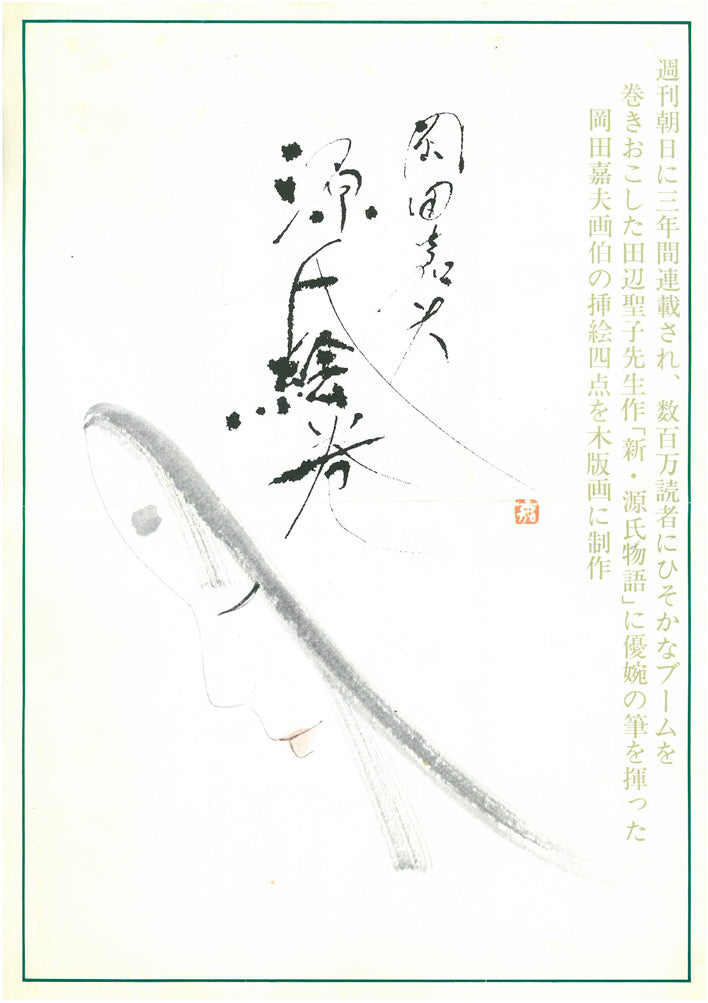 週刊朝日に三年間連載され、数百万読者にひそかなブームを
巻きおこした田辺聖子先生作「新・源氏物語」に優婉の筆を揮った
岡田嘉夫画伯の挿絵四点を木版画に制作
岡田嘉夫
源氏絵巻
嘉